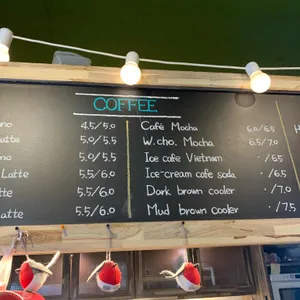 COFFEE
no 4.5/5.0
atte 5.0/5.5
no 5.0/5.5
Latte 5.5/6.0
tte 5.5/6.0
atte 5.5/6.0
Café Mocha 6.0/6.5
W.cho. Mocha 6.5/7.0
Ice café Vietnam ·/6.5
Ice-cream cafe soda ·/6.5
Dark brown cooler ·/7.0
Mud brown cooler ·/7.5
H